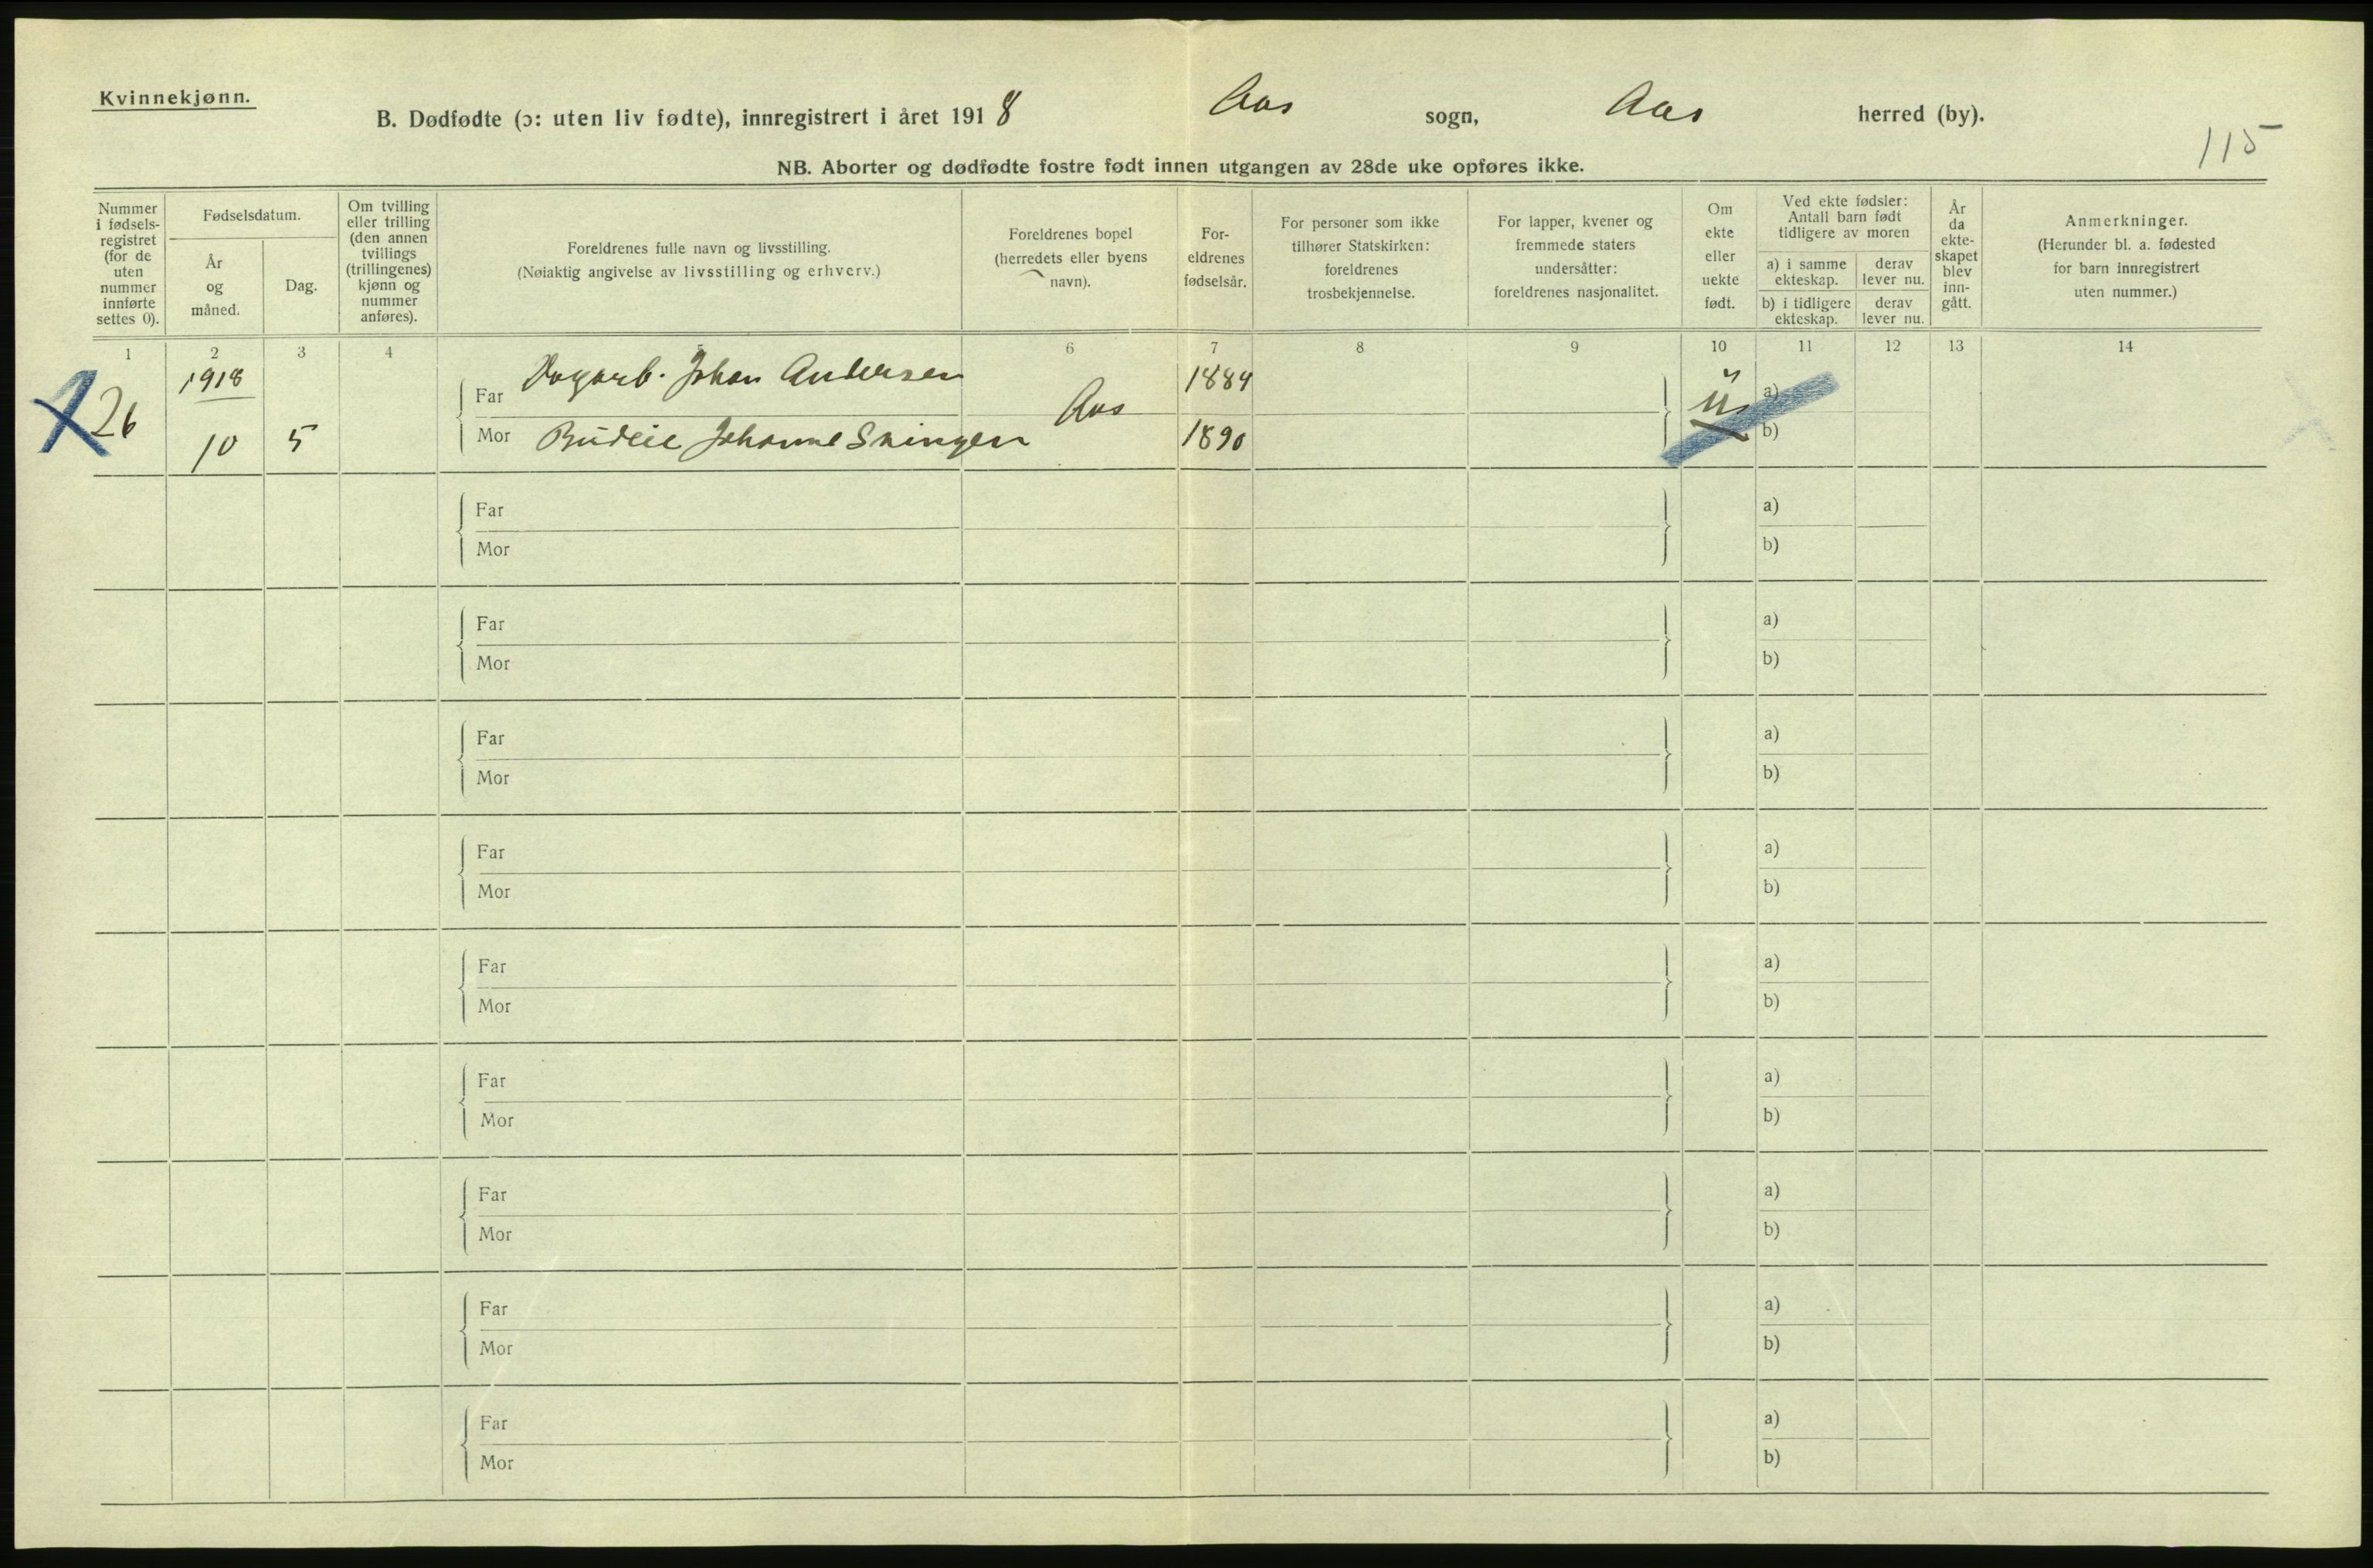 Kvinnekjønn.
B. Dødfødte (ɔ: uten liv fødte), innregistrert i året 1918 Aas sogn, Aas herred (by).
115
NB. Aborter og dødfødte fostre født innen utgangen av 28de uke opføres ikke.
Nummer
i fødsels-
registret
(for de
uten
nummer
innførte
settes 0).
Fødselsdatum.
År
og
måned.
Dag.
Om tvilling
eller trilling
(den annen
tvillings
(trillingenes)
kjønn og
nummer
anføres).
Foreldrenes fulle navn og livsstilling.
(Nøiaktig angivelse av livsstilling og erhverv.)
Foreldrenes bopel
(herredets eller byens
navn).
For-
eldrenes
fødselsår.
For personer som ikke
tilhører Statskirken:
foreldrenes
trosbekjennelse.
For lapper, kvener og
fremmede staters
undersåtter:
foreldrenes nasjonalitet.
Om
ekte
eller
uekte
født.
Ved ekte fødsler:
Antall barn født
tidligere av moren
a) i samme
ekteskap.
derav
lever nu.
b) i tidligere
ekteskap.
derav
lever nu.
År
da
ekte-
skapet
blev
inn-
gått.
Anmerkninger.
(Herunder bl. a. fødested
for barn innregistrert
uten nummer.)
1 2 3 4 5 6 7 8 9 10 11 12 13 14
26
1918
10
5
Far Johan Andersen
Mor Budeie Johanne
Aas
1884
1890
a)
b)
Far
Mor
a)
b)
Far
Mor
a)
b)
Far
Mor
a)
b)
Far
Mor
a)
b)
Far
Mor
a)
b)
Far
Mor
a)
b)
Far
Mor
a)
b)
Far
Mor
a)
b)
Far
Mor
a)
b)